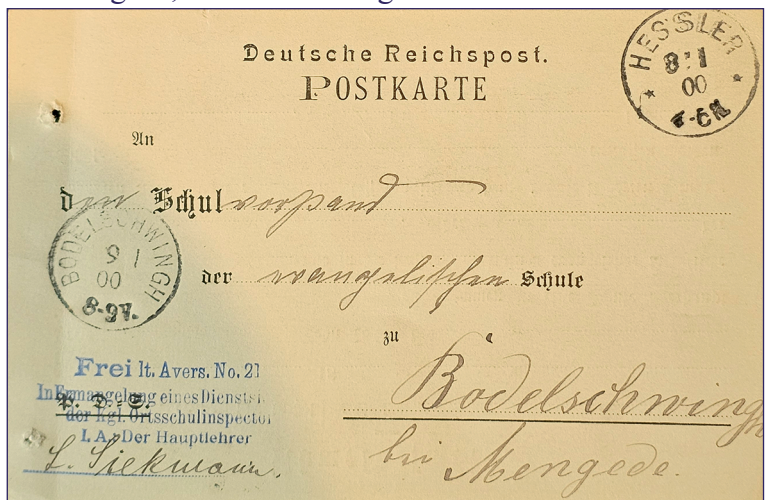 Deutsche Reichspost.
POSTKARTE
HESSLER
8 1
00
7-8N.
An
den Schulvorstand
BODELSCHWINGH
9 1
00
8-9V.
der evangelischen Schule
zu
Bodelschwingh
bei Mengede.
Frei lt. Avers. No. 21
In Ermangelung eines Dienstsi
der Kgl. Ortsschulinspector
I. A. Der Hauptlehrer
L. Siekmann.